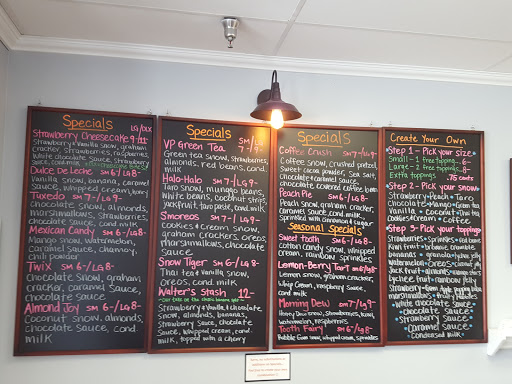 Specials LG/XXX
Strawberry Cheesecake 9-/11
Strawberry & Vanilla snow, graham
cracker, strawberries, raspberries,
White chocolate sauce, strawberry
sauce, cond. milk
Dulce De Leche SM 6-/LG 8-
Vanilla snow, bananas, caramel
sauce, whipped cream,
Tuxedo SM 7-/LG 9-
Chocolate snow, almonds,
marshmallows, strawberries,
chocolate sauce, cond. milk
Mexican Candy SM 6-/LG 8-
Mango snow, watermelon,
caramel sauce, chamoy,
chili powder
Twix SM 6-/LG 8-
chocolate snow, graham
cracker, caramel sauce,
chocolate sauce
Almond Joy SM 6-/LG 8-
Coconut snow, almonds,
chocolate sauce, cond.
milk
Specials SM/LG
VP Green Tea 7-/9-
Green tea snow, strawberries,
almonds, red beans, cond.
milk
Halo-Halo SM 7-/LG 9-
Taro snow, mungo beans,
white beans, coconut strips,
jackfruit, cond. milk
Smoreos SM 7-/LG 9-
cookies & cream snow,
graham crackers, oreos,
marshmallows, chocolate
sauce
Snow Tiger SM 6-/LG 8-
Thai tea & vanilla snow,
Oreos, cond. milk
Walter's Stash 12-
Strawberry & vanilla & chocolate
snow, almonds, bananas,
Strawberry sauce, chocolate
sauce, whipped cream, cond.
milk, topped with a cherry
Specials
Coffee Crush SM 7-/LG 9-
Coffee snow, crushed pretzel,
Sweet cocoa powder, sea salt,
Chocolate & caramel sauce,
chocolate covered coffee bean
Peach Pie SM 6-/LG 8-
Peach snow, graham cracker,
caramel sauce, cond. milk,
sprinkled with cinnamon & sugar
Seasonal Specials
Sweet tooth SM 6-/LG 8-
cotton candy snow, whipped
cream, rainbow sprinkles
Lemon-Berry Tart SM 6/LG 8
Lemon snow, graham cracker,
Whip cream, raspberry sauce,
cond. milk
Morning Dew SM 7-/LG 9-
Honey Dew snow, strawberries, kiwi,
watermelon, raspberries
Tooth Fairy SM 6-/LG 8-
Bubble Gum snow, whipped cream, sprinkles
Create Your Own
Step 1- Pick your size
Small - 1 free topping.. 6-
Large - 2 free toppings.. 8-
Extra toppings .75 cents
Step 2- Pick your snow
Strawberry • Peach • Taro
Chocolate • Mango • Green tea
Vanilla • Coconut • Thai tea
cookies & cream • Coffee
Step 3- Pick your toppings
Strawberries • sprinkles • red beans
Kiwi • brownie crumbs
bananas • granola
Watermelon • Oreos • coconut jelly
Jack fruit • almonds
lychee fruit • rainbow jelly
marshmallows • fruity pebbles
• white chocolate sauce •
• chocolate sauce •
• strawberry sauce •
• caramel sauce •
• condensed milk •